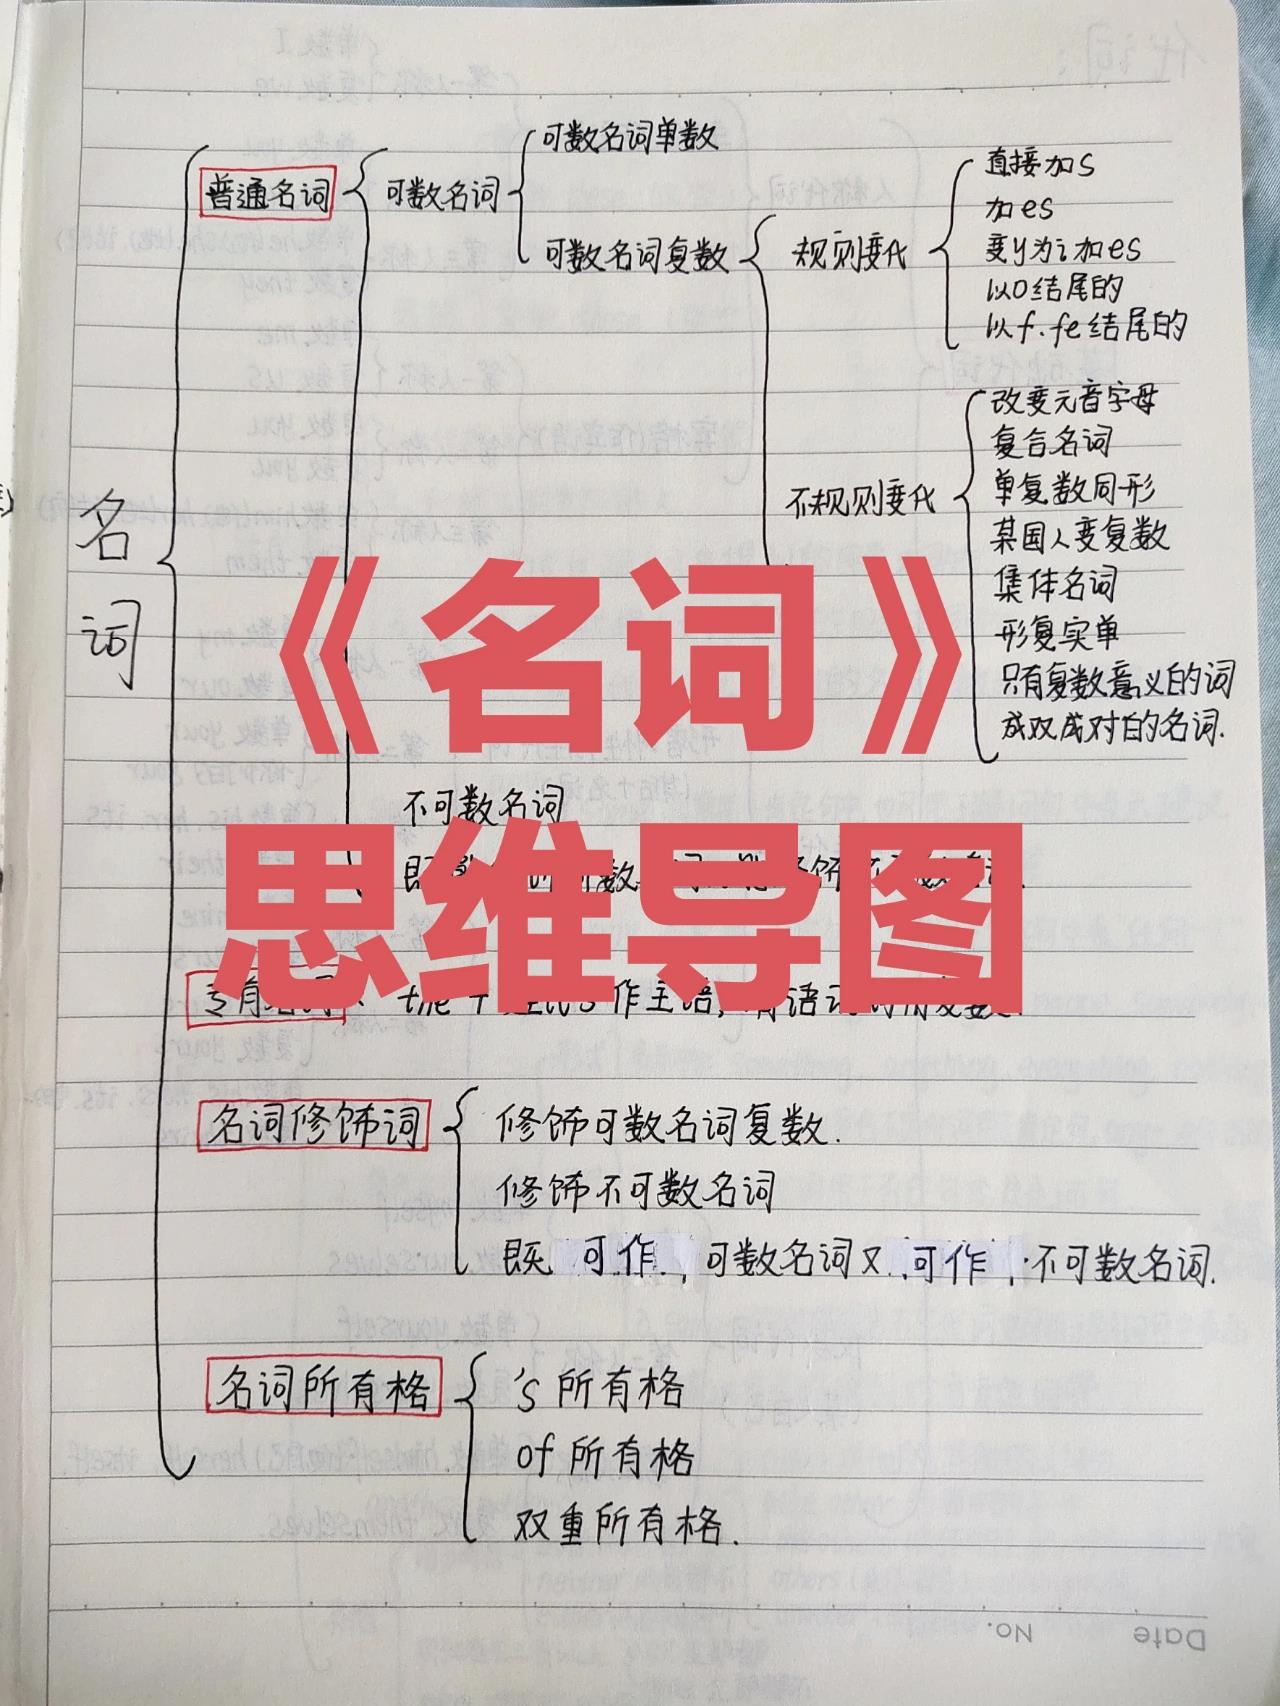 可数名词单数
直接加s
普通名词
可数名词
加es
可数名词复数
规则变化
变y为i加es
以o结尾的
以f.fe结尾的
改变元音字母
复合名词
不规则变化
单复数同形
某国人变复数
集体名词
形复实单
只有复数意义的词
成双成对的名词.
名词
《名词》
思维导图
不可数名词
既
专有名词
作主语,
名词修饰词
修饰可数名词复数.
修饰不可数名词
既可作可数名词又可作不可数名词.
名词所有格
's所有格
of所有格
双重所有格.
Date
No.